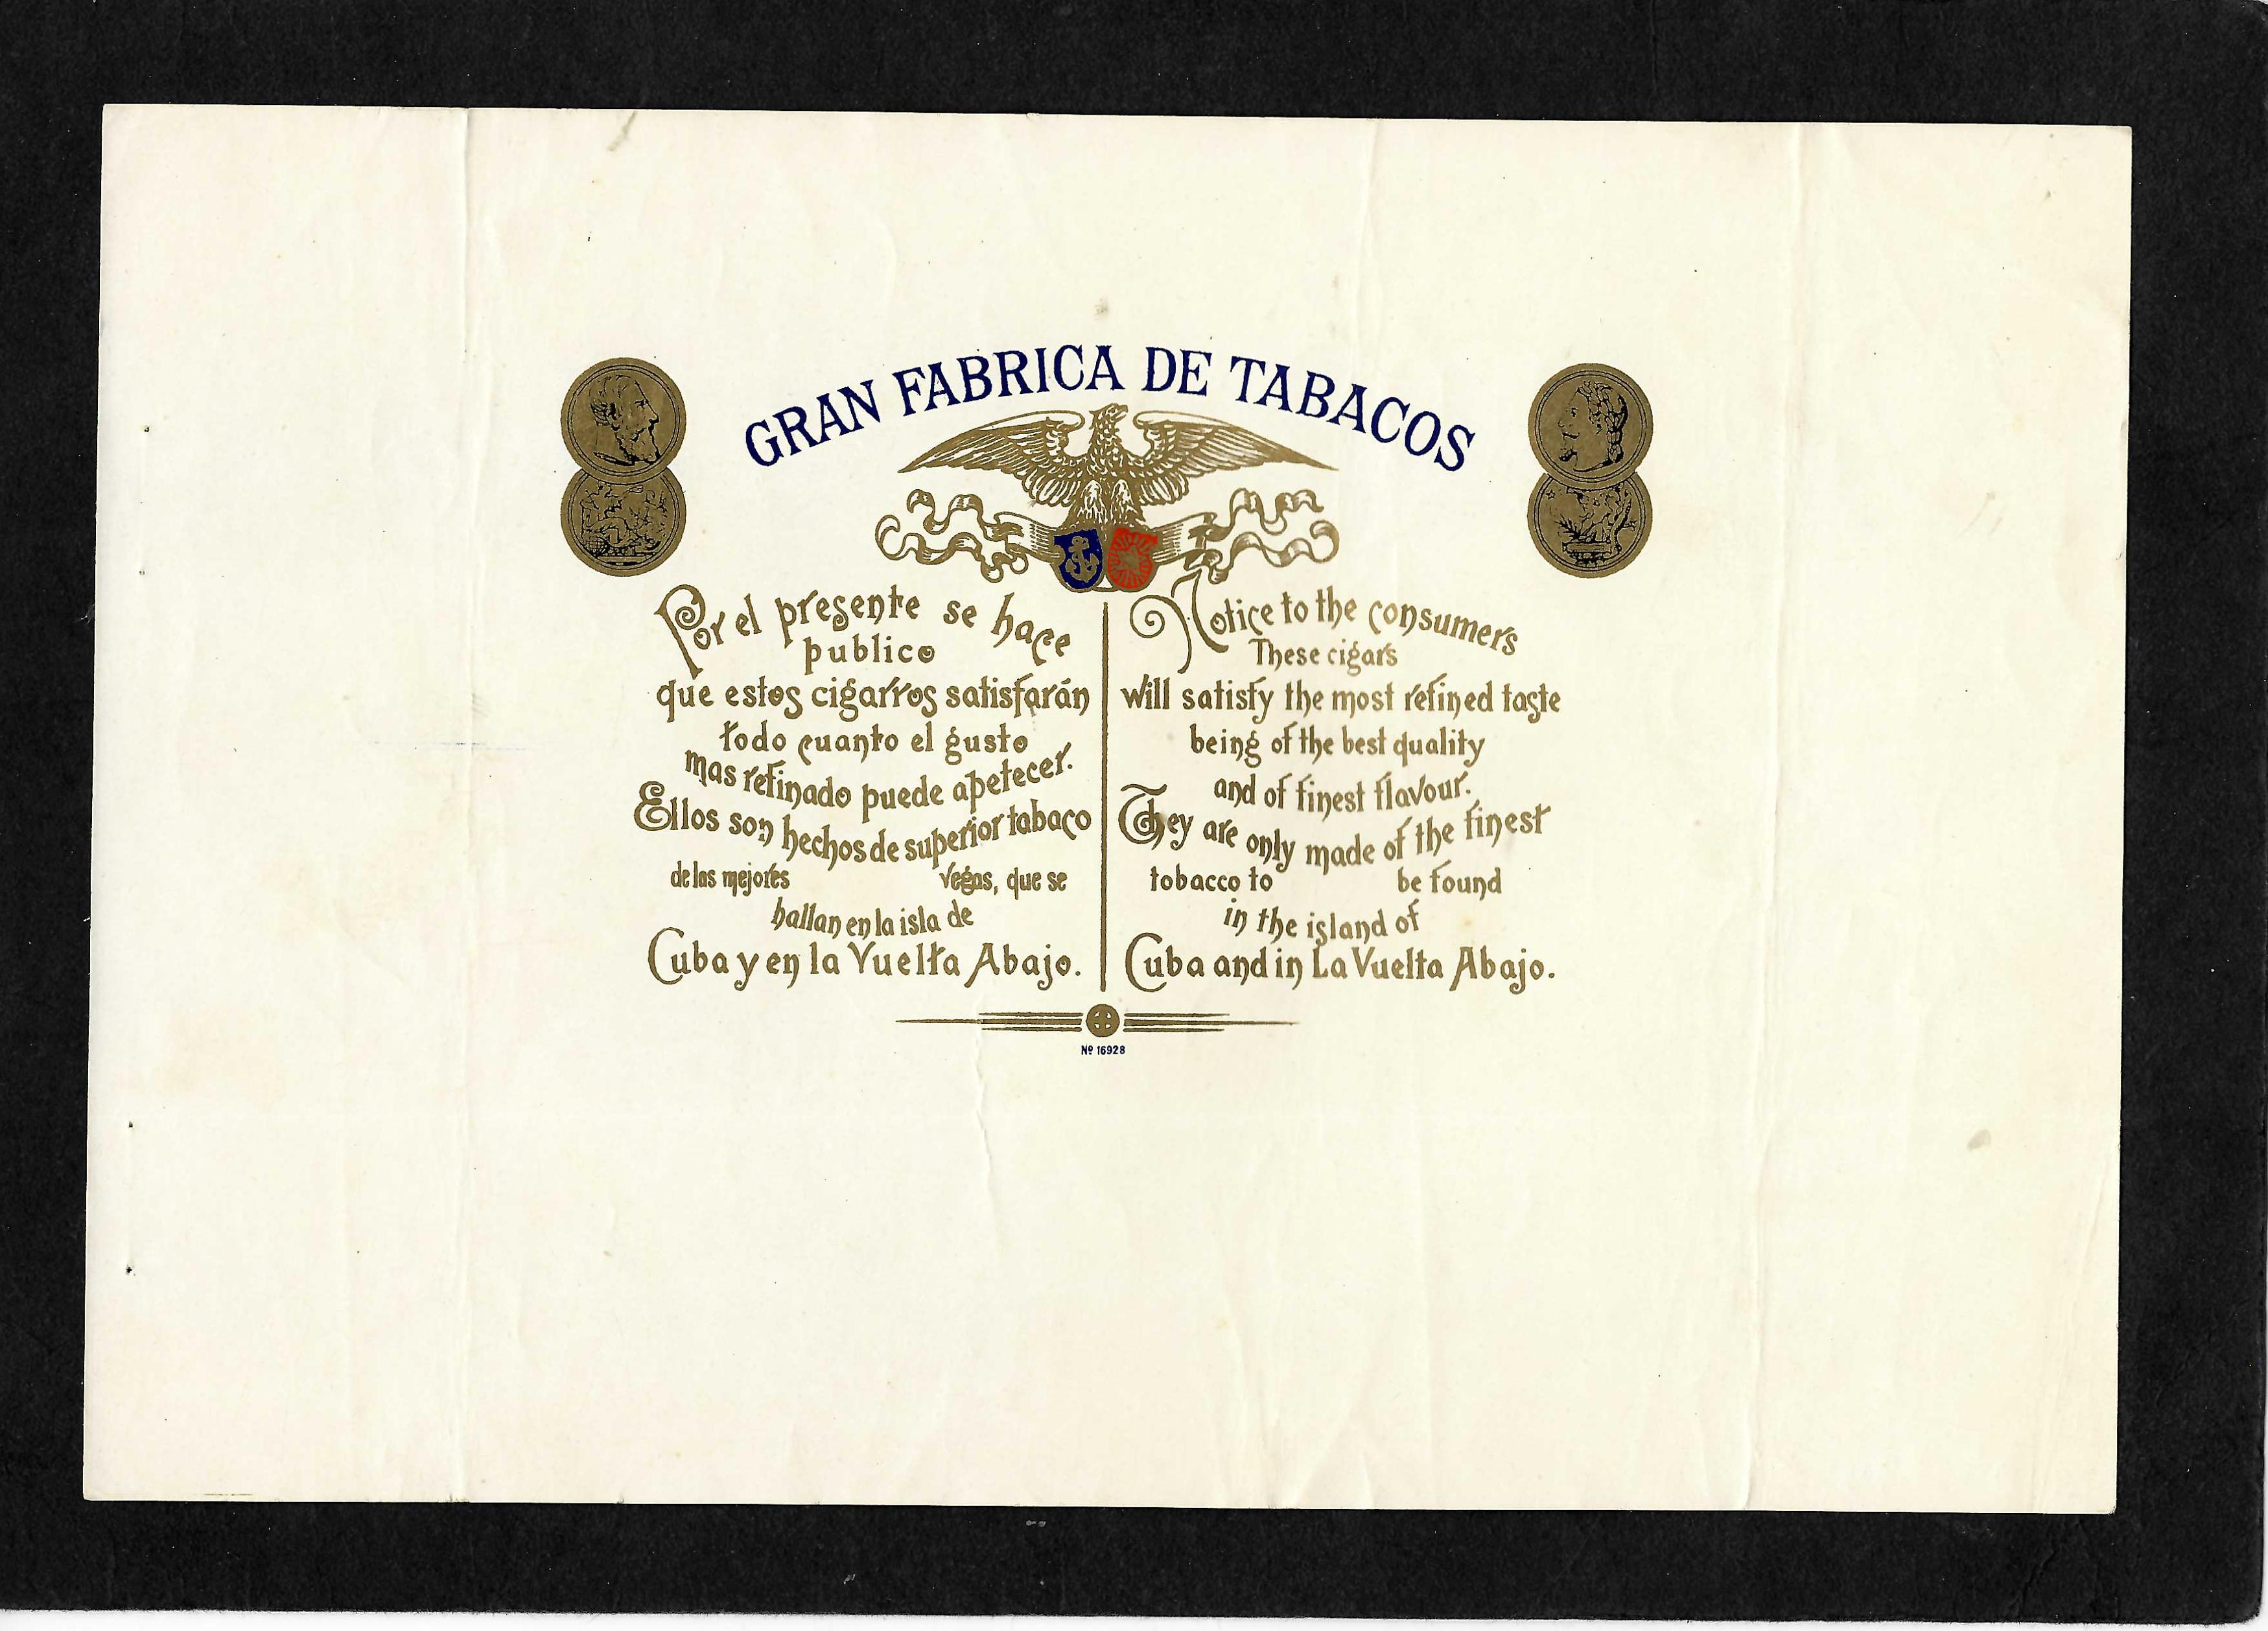 GRAN FABRICA DE TABACOS
Por el presente se hace
publico
que estos cigarros satisfarán
todo cuanto el gusto
mas refinado puede apetecer.
Ellos son hechos de superior tabaco
de las mejores vegas, que se
hallan en la isla de
Cuba y en la Vuelta Abajo.
Notice to the consumers
These cigars
will satisfy the most refined taste
being of the best quality
and of finest flavour.
They are only made of the finest
tobacco to be found
in the island of
Cuba and in La Vuelta Abajo.
Nº 16928